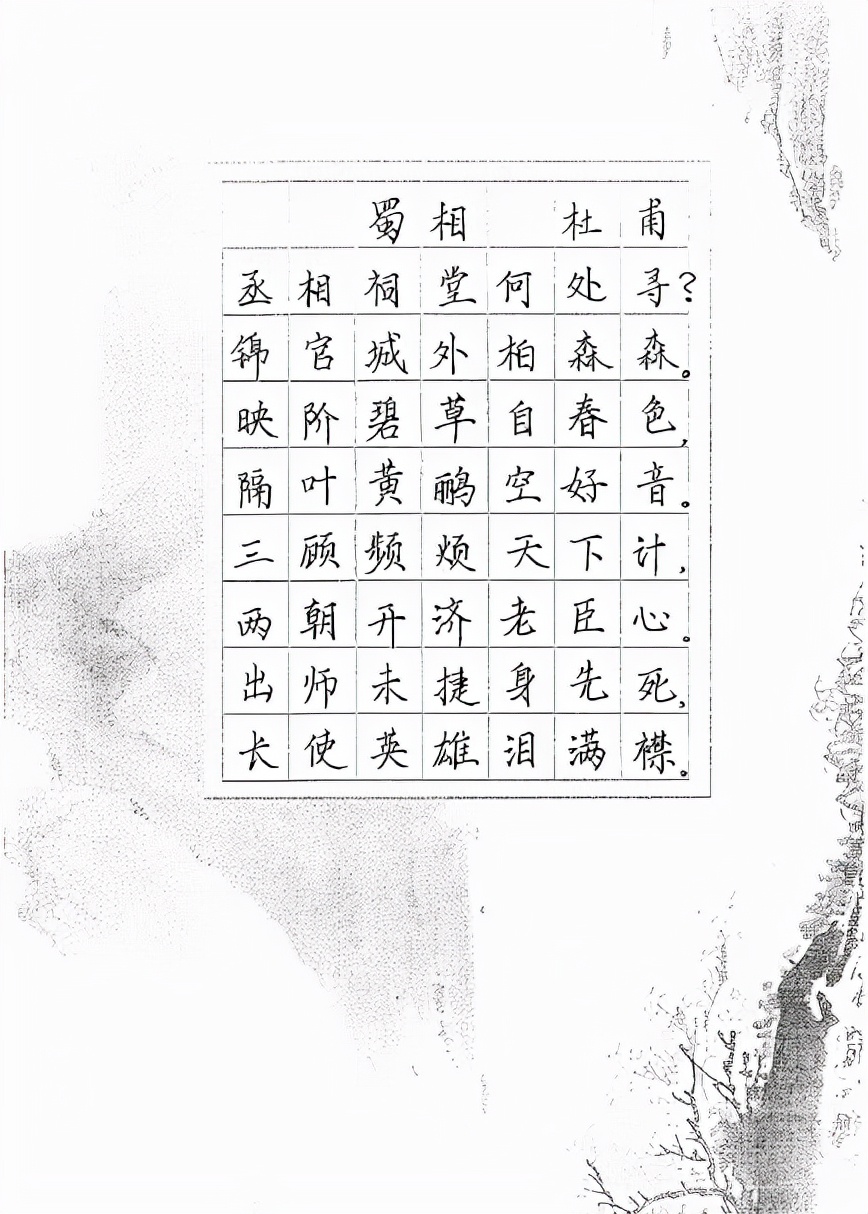 蜀相 杜甫
丞相祠堂何处寻?
锦官城外柏森森。
映阶碧草自春色,
隔叶黄鹂空好音。
三顾频烦天下计,
两朝开济老臣心。
出师未捷身先死,
长使英雄泪满襟。